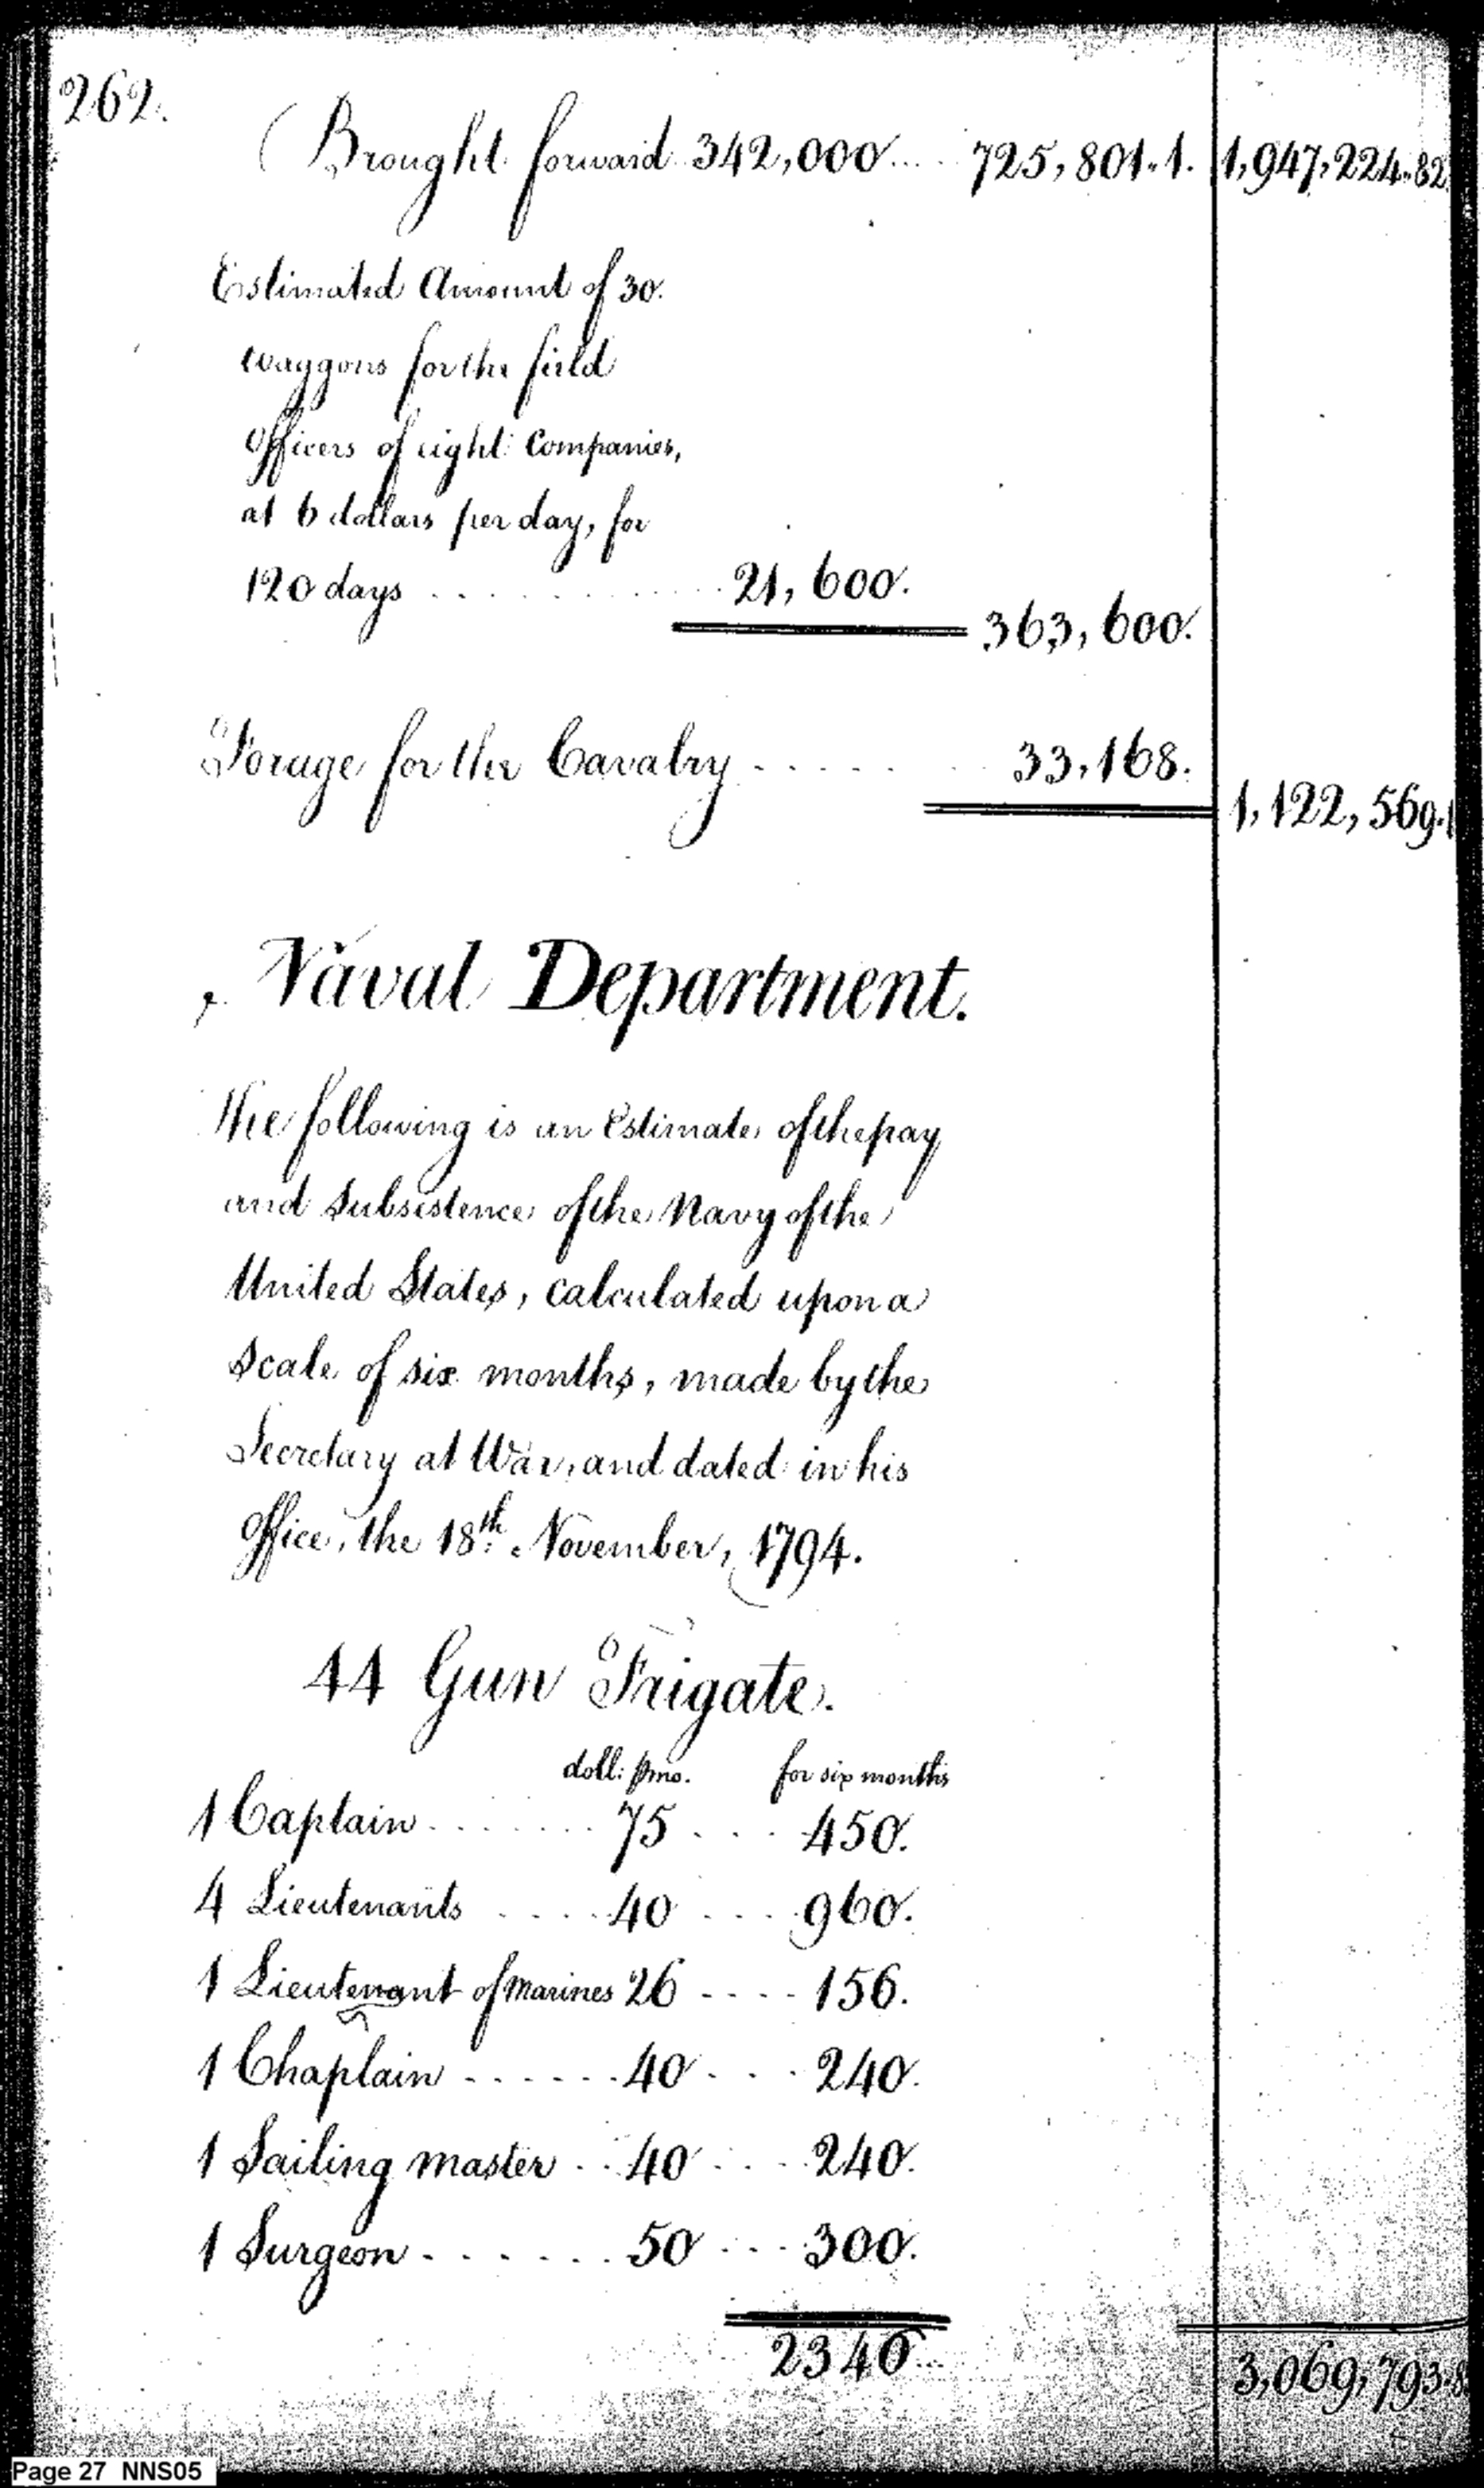 262.
Brought forward 342,000 .... 725,801.1. 1,947,224.82
Estimated Amount of 30.
waggons for the field
Officers of eight Companies,
at 6 dollars per day, for
120 days ............ 21,600.
363,600.
Forage for the Cavalry ....... 33,168.
1,122,569.1
Naval Department.
The following is an Estimate of the pay
and Subsistence of the Navy of the
United States, calculated upon a
Scale of six months, made by the
Secretary at War, and dated in his
Office, the 18th. November, 1794.
44 Gun Frigate.
doll: pmo. for six months
1 Captain ....... 75 .... 450.
4 Lieutenants .... 40 .... 960.
1 Lieutenant of Marines 26 .... 156.
1 Chaplain ...... 40 .... 240.
1 Sailing master .. 40 .... 240.
1 Surgeon ....... 50 .... 300.
2340...
3,069,793.8
Page 27 NNS05